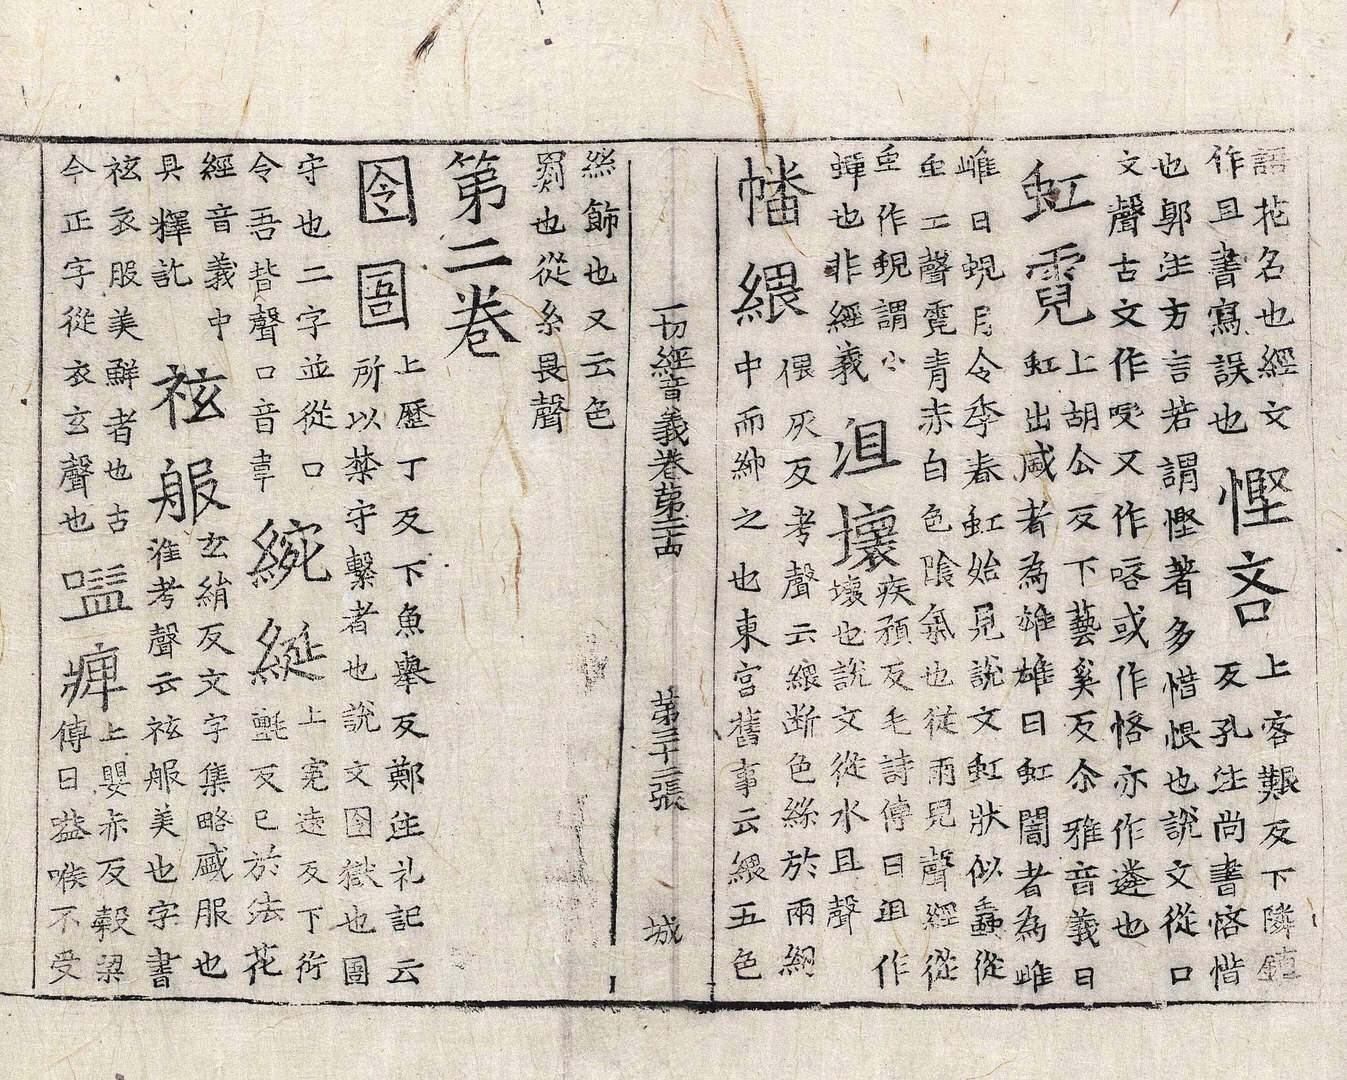 語於名也經文
作且書寫誤也
慳吝
上客艱反下隣鎮
反孔注尚書悋惜
也郭注方言若謂慳著多惜恨也說文從口
文聲古文作㖁又作唘或作悋亦作遴也
虹霓
上胡公反下藝奚反尒雅音義曰
虹出盛者為雄雄曰虹闇者為雌
雌曰蜺月令季春虹始見說文虹狀似蟲從
虫工聲霓青赤白色陰氣也從雨兒聲經從
虫作蜺謂小
蟬也非經義
沮壞
疾預反毛詩傳曰沮作
壞也說文從水且聲
幡緭
偎灰反考聲云緭断色絲於兩䋄
中而紳之也東宮舊事云緭五色
一切經音義卷第二十四 第三十二張 城
絲飾也又云色
罽也從糸畏聲
第二卷
囹圄
上歷丁反下魚舉反鄭注礼記云
所以禁守繫者也說文囹獄也圄
守也二字並從口
令吾皆聲口音韋
綩綖
上寃遠反下衍
氈反已於法花
經音義中
具釋訖
袨服
玄絹反文字集略盛服也
淮考聲云袨服美也字書
袨衣服美鮮者也古
今正字從衣玄聲也
嗌痺
上嬰亦反穀梁
傳曰嗌喉不受